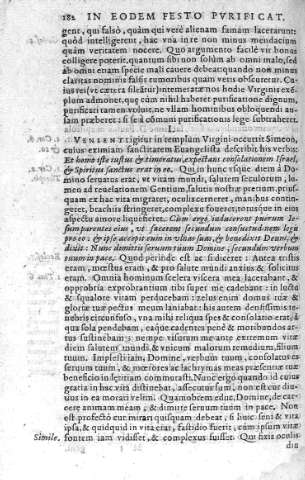 182 IN EODEM FESTO PVRIFICAT.
gent, qui falsò, quàm qui verè alienam famam lacerarunt:
quòd intelligerent, hac vna in re non minus mendacium
quàm veritatem nocere. Quo argumento facilè vir bonus
colligere poterit, quantum sibi non solùm ab omni malo, sed
ab omni etiam specie mali cauere debeat: quando non minus
claritas nominis falsis rumoribus quàm veris obscuretur.
admonet, quę cùm nihil haberet purificatione dignum,
purificari tamen voluit, ne vllam hominibus obloquendi
sam præberet: si seſe communi purificationis lege subtraheret.
VENIENTI igitur in templum Virgini occurrit Simeon,
cuius eximiam sanctitatem Euangelista describit his verbis:
Et homo iste iustus & timoratus, expectans consolationem Israel,
& Spiritus sanctus erat in eo. Qui in hunc vsque diem à Domino
seruatus erat, vt viuam mundi, salutem seculorum,
men ad reuelationem Gentium, salutis nostræ pretium, priusquam
ex hac vita migraret, oculis cerneret, manibus contingeret,
brachiis stringeret, complexu foueret, totusque in eius
aspectu amore liquesceret. Cùm ergo inducerent puerum Iesum
parentes eius, vt facerent secundum consuetudinem legis
pro eo: & ipse accepit eum in vlnas suas, & benedixit Deum, &
dixit: Nunc dimittis seruum tuum Domine, secundùm verbum
tuum in pace. Quod perinde est ac si diceret: Antea tristis
eram, mœstus eram, & pro salute mundi anxius & solicitus
eram. Omnia hominum scelera viscera mea lacerabant, &
opprobria exprobrantium tibi super me cadebant: in luctu
& squalore vitam perducebam: zelus enim domus tuæ &
gloriæ tuæ pectus meum laniabat: his autem densissimis tenebris
circunfuso, vna mihi reliqua spes & consolatio erat, &
qua sola pendebam, eaque cadentes penè & moribundos artus
sustinebam: nempe visurum me ante extremum vitæ
diem salutem mundi, & veniam malorum remedium, filium
tuum. Implesti iam, Domine, verbum tuum, consolatus es
seruum tuum, & mœrores ac lachrymas meas præsentiæ tuæ
beneficio in lętitiam commutasti. Nunc ergo quando id cuius
gratia in hac vita distinebar, assecutus sum, non est cur diutius
in ea morari velim. Quamobrem educ, Domine, de carcere
animam meam, & dimitte seruum tuum in pace. Non
est profectò cur mirari quisquam debeat, si hunc seni & vita
ipsa, & quidquid in vita erat, fastidio fuerit, cùm ipsum vitæ
Simile. fontem iam vidisset, & complexus fuisset. Qui fixis oculis
diu